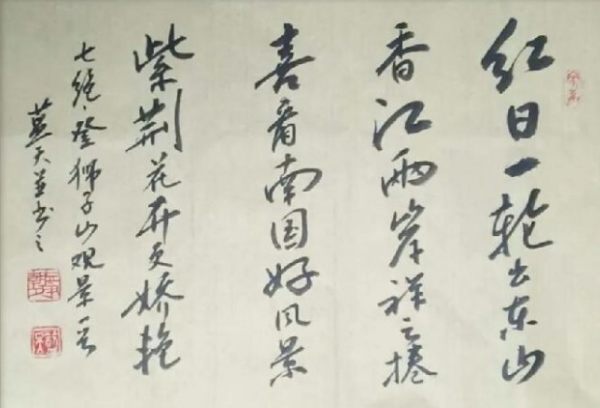 红日一轮出东山
香江两岸祥云捲
喜看南国好风景
紫荆花开更娇艳
七绝·登狮子山观景一首
天并书之